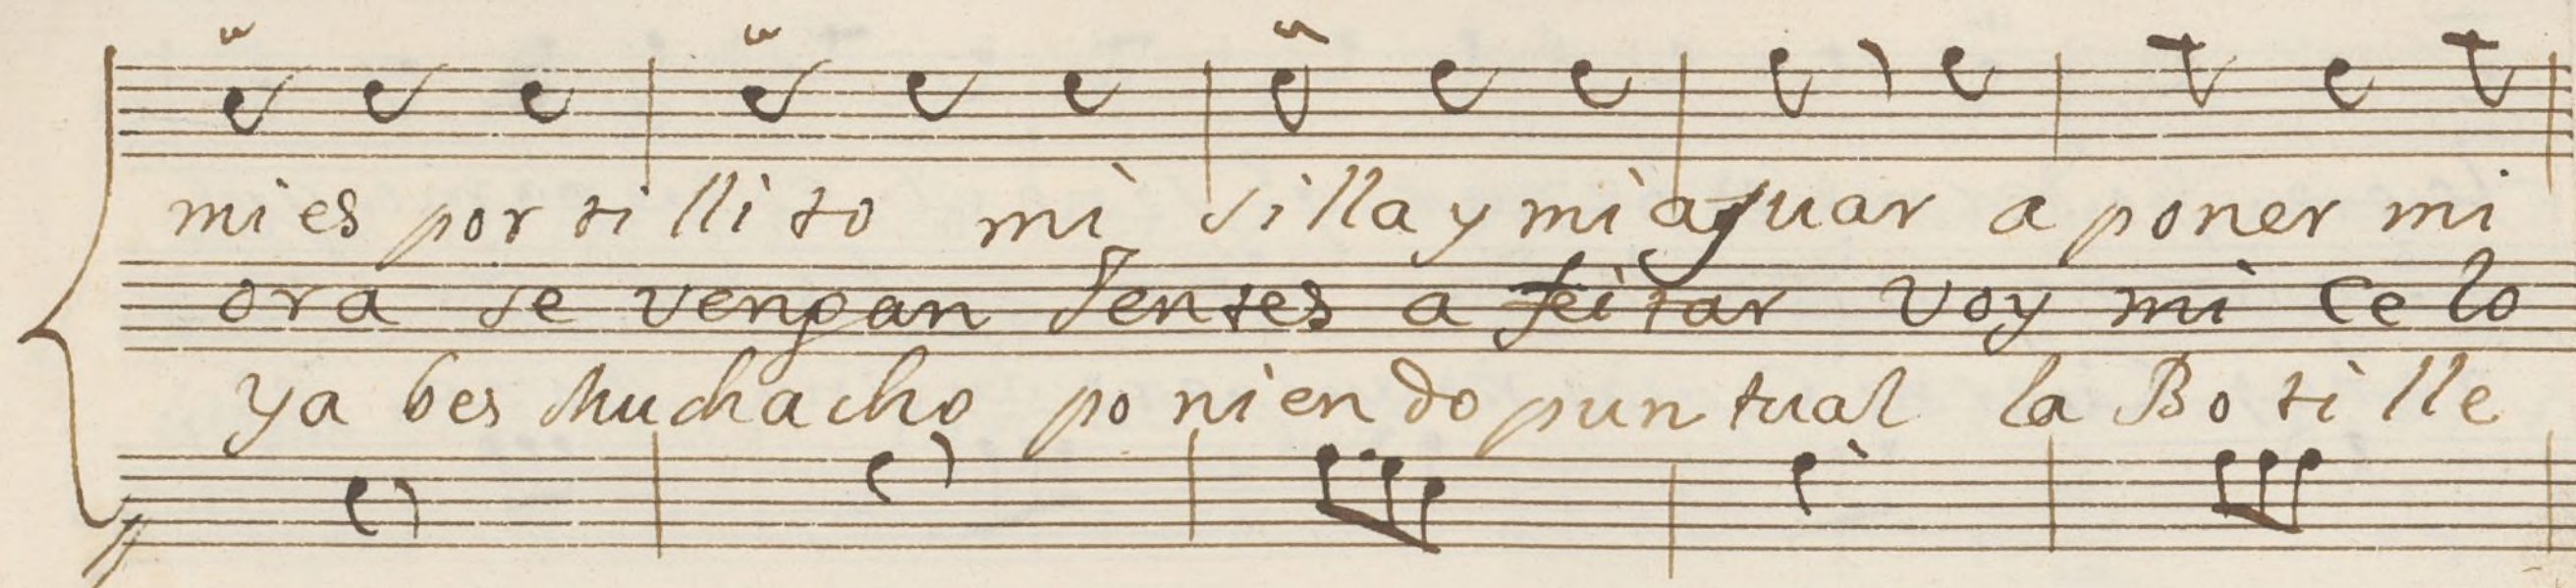 mi es por ti lli to mi silla y mi ajuar a poner mi
ora se vengan Jentes a feitar voy mi ce lo
ya bes Muchacho po nien do pun tual la Bo ti lle